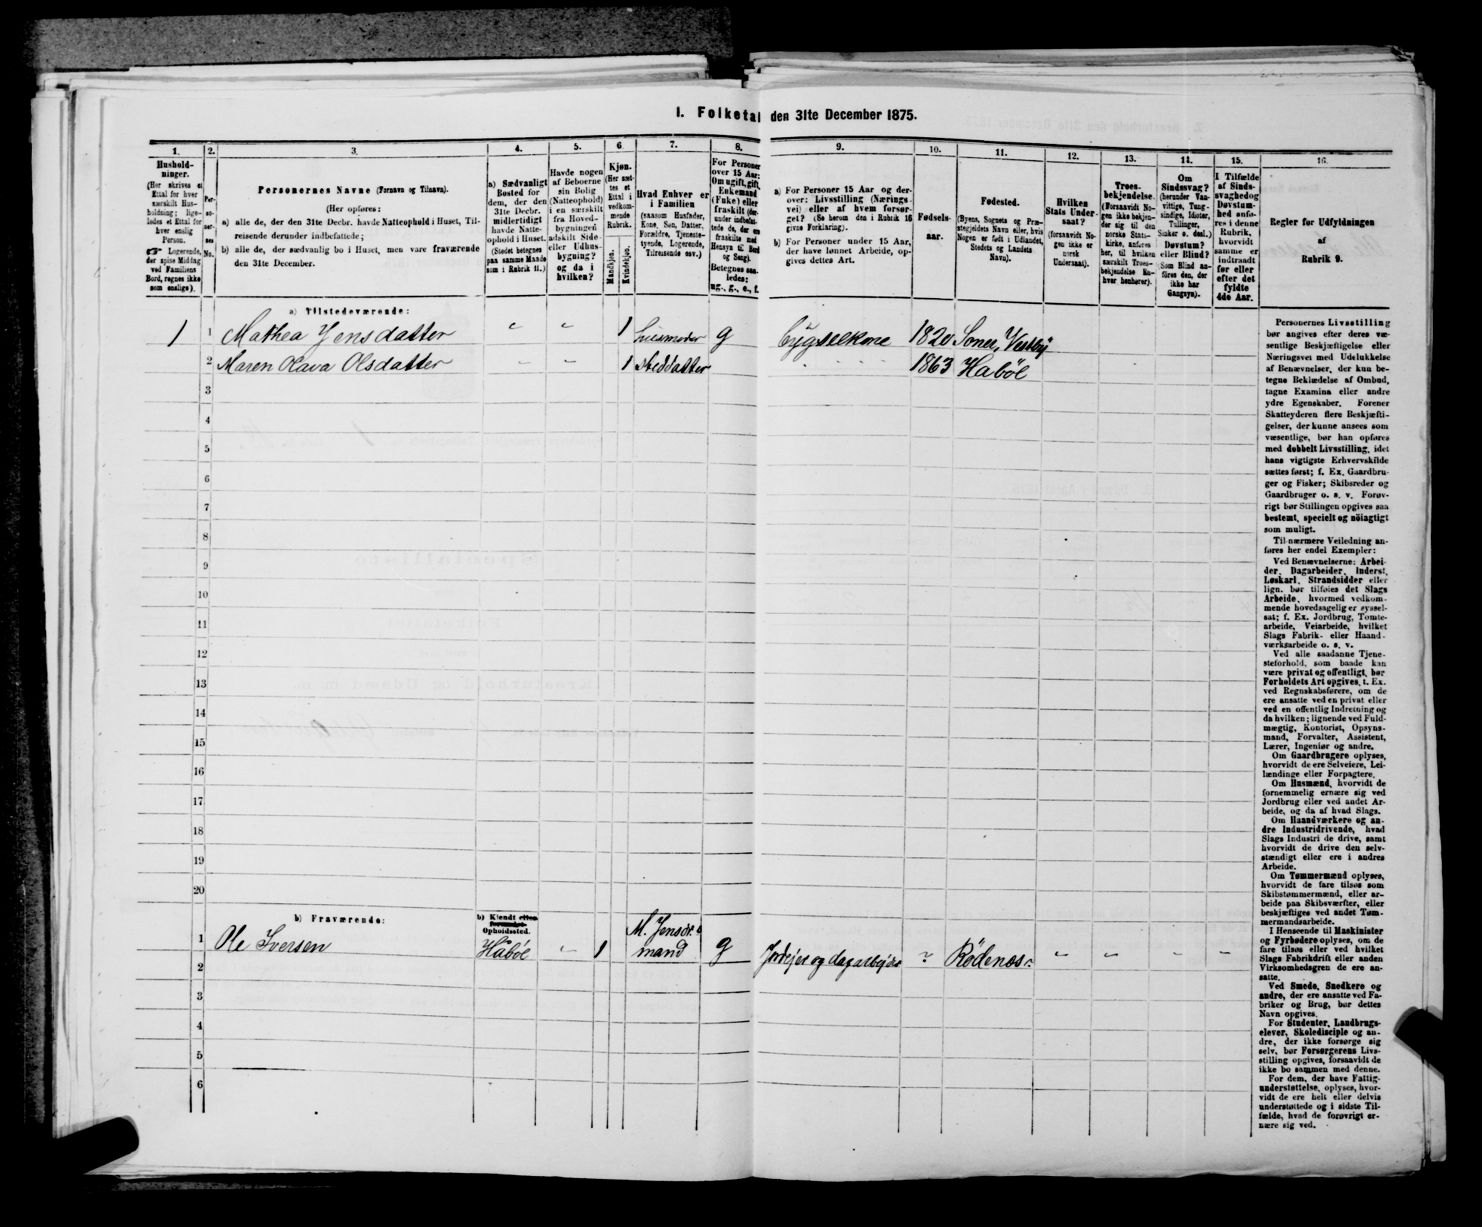 I. Folketal den 31te December 1875.
1.
Hushold-
ninger.
(Her skrives et
Ettal for hver
særskilt Hus-
holdning; lige-
ledes et Ettal for
hver enslig
Person.
Logerende,
der spise Middag
ved Familiens
Bord, regnes ikke
som enslige).
2.
Per-
so-
ner-
nes
No.
3.
Personernes Navne (Fornavn og Tilnavn).
(Her opføres:
a) alle de, der den 31te Decbr. havde Natteophold i Huset, Til-
reisende derunder indbefattede;
b) alle de, der sædvanlig bo i Huset, men vare fraværende
den 31te December.
4.
a) Sædvanligt
Bosted for
dem, der den
31te Decbr.
midlertidigt
havde Natte-
ophold i Huset.
(Stedet betegnes
paa samme Maade
som i Rubrik 11.)
5.
Havde nogen
af Beboerne
sin Bolig
(Natteophold)
i en særskilt
fra Hoved-
bygningen
adskilt Side-
eller Udhus-
bygning?
og da i
hvilken?
6.
Kjøn.
(Her sæt-
tes et
Ettal i
vedkom-
mende
Rubrik.
Mandkjøn.
Kvindekjøn.
7.
Hvad Enhver er
i Familien
(saasom Husfader,
Kone, Søn, Datter,
Forældre, Tjeneste-
tyende, Logerende,
Tilreisende osv.)
8.
For Personer
over 15 Aar:
Om ugift, gift,
Enkemand
(Enke) eller
fraskilt (der-
under indbefat-
tede de, der ere
fraskilte med
Hensyn til Bord
og Seng).
Betegnes saa-
ledes:
ug., g., e., f.
9.
a) For Personer 15 Aar og der-
over: Livsstilling (Nærings-
vei) eller af hvem forsør-
get? (Se herom den i Rubrik 16
givne Forklaring).
b) For Personer under 15 Aar,
der have lønnet Arbeide, op-
gives dettes Art.
10.
Fødsels-
aar.
11.
Fødested.
(Byens, Sognets og Præ-
stegjeldets Navn eller, hvis
Nogen er født i Udlandet,
Stedets og Landets
Navn).
12.
Hvilken
Stats Under-
saat?
(forsaavidt No-
gen ikke er
norsk
Undersaat).
13.
Troes-
bekjendelse.
(Forsaavidt No-
gen ikke bekjen-
der sig til den
norske Stats-
kirke, anføres
her, til hvilken
særskilt Troes-
bekjendelse En-
hver henhører).
14.
Om
Sindssvag?
(herunder Van-
vittige, Tung-
sindige, Idioter,
Tullinger,
Sinker o. desl.)
Døvstum?
eller Blind?
Som Blind an-
føres den, der
ikke har
Gangsyn).
15.
I Tilfælde
af Sinds-
svaghed og
Døvstum-
hed anfø-
res i denne
Rubrik,
hvorvidt
samme er
indtraadt
før eller
efter det
fyldte
4de Aar.
16.
Regler for Udfyldningen
af
Rubrik 9.
a) Tilstedeværende:
1 1 Mathea Jensdatter " " 1 huusmoder g Bygselkone 1820 Soner, Vestby
2 Maren Olava Olsdatter " " 1 Steddatter 1863 Haböl
3
4
5
6
7
8
9
10
11
12
13
14
15
16
17
18
19
20
b) Fraværende:
b) Kjendt eller
formodet
Opholdssted.
1 Ole Iversen Haböl " 1 M. Jensdr.s mand g Jordejer og dagarbejder ? Rödenæs? " " " "
2
3
4
5
6
Personernes Livsstilling
bør angives efter deres væ-
sentlige Beskjæftigelse eller
Næringsvei med Udelukkelse
af Benævnelser, der kun be-
tegne Beklædelse af Ombud,
tagne Examina eller andre
ydre Egenskaber. Forener
Skatteyderen flere Beskjæfti-
gelser, der kunne ansees som
væsentlige, bør han opføres
med dobbelt Livsstilling, idet
hans vigtigste Erhvervskilde
sættes først; f. Ex. Gaardbru-
ger og Fisker; Skibsreder og
Gaardbruger o. s. v. Forøv-
rigt bør Stillingen opgives saa
bestemt, specielt og nøiagtigt
som muligt.
Til nærmere Veiledning an-
føres her endel Exempler:
Ved Benævnelserne: Arbei-
der, Dagarbeider, Inderst,
Løskarl, Strandsidder eller
lign. bør tilføies det Slags
Arbeide, hvormed vedkom-
mende hovedsagelig er syssel-
sat; f. Ex. Jordbrug, Tomte-
arbeide, Veiarbeide, hvilket
Slags Fabrik- eller Haand-
værksarbeide o. s. v.
Ved alle saadanne Tjene-
steforhold, som baade kan
være privat og offentligt, bør
Forholdets Art opgives, t. Ex.
ved Regnskabsførere, om de
ere ansatte ved en privat eller
ved en offentlig Indretning og
da hvilken; lignende ved Fuld-
mægtig, Kontorist, Opsyns-
mand, Forvalter, Assistent,
Lærer, Ingeniør og andre.
Om Gaardbrugere oplyses,
hvorvidt de ere Selveiere, Lei-
lændinge eller Forpagtere.
Om Husmænd, hvorvidt de
fornemmelig ernære sig ved
Jordbrug eller ved andet Ar-
beide, og da af hvad Slags.
Om Haandværkere og an-
dre Industridrivende, hvad
Slags Industri de drive, samt
hvorvidt de drive den selv-
stændigt eller ere i andres
Arbeide.
Om Tømmermænd oplyses,
hvorvidt de fare tilsøs som
Skibstømmermænd, eller ar-
beide paa Skibsværfter, eller
beskjæftiges ved andet Tøm-
mermandsarbeide.
I Henseende til Maskinister
og Fyrbødere oplyses, om de
fare tilsøs eller ved hvilket
Slags Fabrikdrift eller anden
Virksomhedsgren de ere an-
satte.
Ved Smede, Snedkere og
andre, der ere ansatte ved Fa-
briker og Brug, bør dettes
Navn opgives.
For Studenter, Landbrugs-
elever, Skoledisciple og an-
dre, der ikke forsørge sig
selv, bør Forsørgerens Livs-
stilling opgives, forsaavidt de
ikke bo sammen med denne.
For dem, der have Fattig-
understøttelse, oplyses, hvor-
vidt de ere helt eller delvis
understøttede og i sidste Til-
fælde, hvad de forøvrigt er-
nære sig ved.